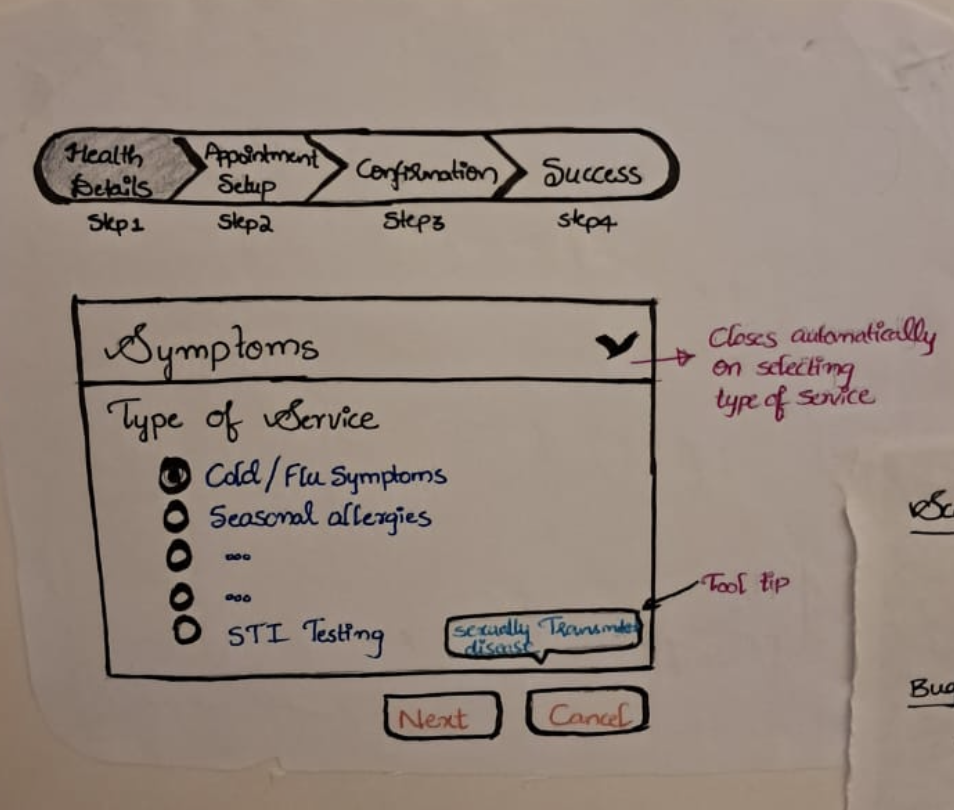 Health
Details
Appointment
Setup
Confirmation
Success
Step1
Step2
Step3
Step4
Symptoms
Closes automatically
on selecting
type of service
Type of Service
Cold/Flu Symptoms
Seasonal allergies
...
...
Tool tip
STI Testing
Sexually
disease
Next
Cancel